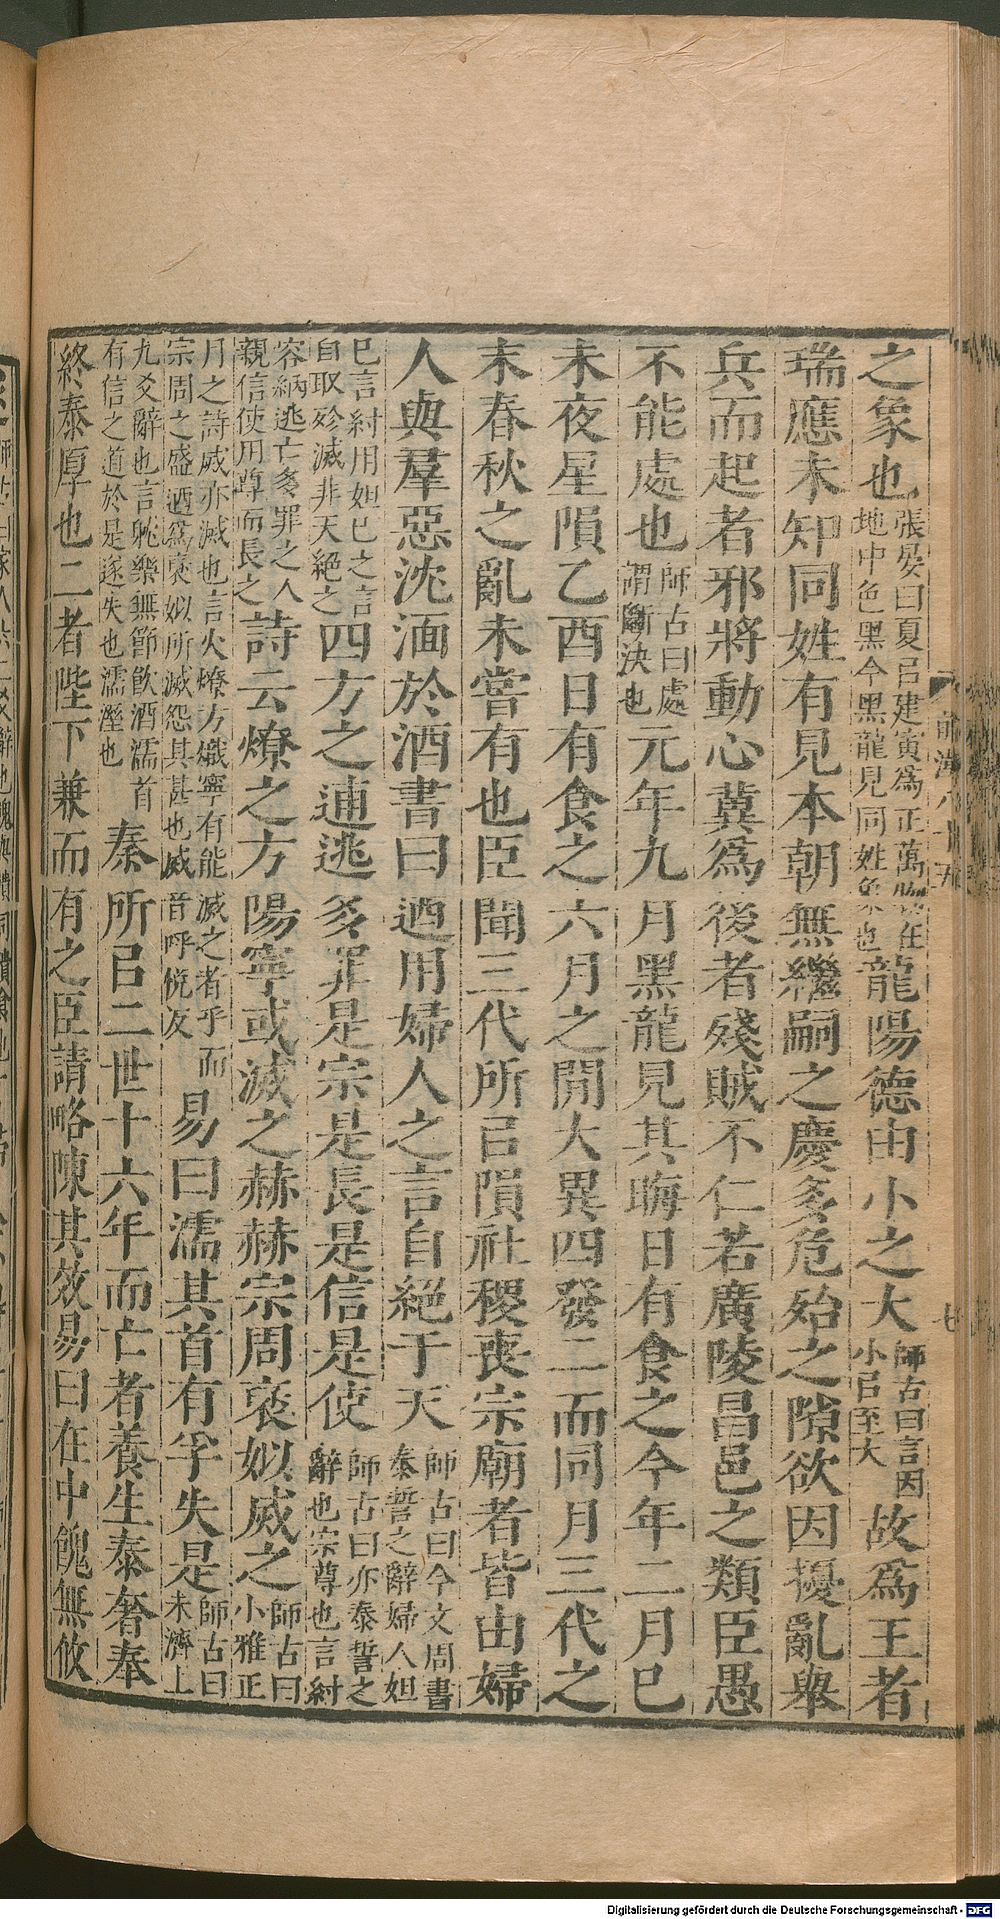 之象也張晏曰夏㠯建寅爲正萬物在地中色黑今黑龍見同姓象也龍陽德由小之大師古曰言因小㠯至大故爲王者
瑞應未知同姓有見本朝無繼嗣之慶多危殆之隙欲因擾亂舉
兵而起者邪將動心冀爲後者殘賊不仁若廣陵昌邑之類臣愚
不能處也師古曰處謂斷決也元年九月黑龍見其晦日有食之今年二月已
未夜星隕乙酉日有食之六月之閒大異四發二而同月三代之
末春秋之亂未嘗有也臣聞三代所㠯隕社稷喪宗廟者皆由婦
人與羣惡沈湎於酒書曰逎用婦人之言自絕于天師古曰今文周書泰誓之辭婦人妲
已言紂用妲已之言自取殄滅非天絕之四方之逋逃多罪是宗是長是信是使師古曰亦泰誓之辭也宗尊也言紂
容納逃亡多罪之人親信使用尊而長之詩云燎之方陽寧或滅之赫赫宗周襃姒烕之師古曰小雅正
月之詩烕亦滅也言火燎方熾寧有能滅之者乎而宗周之盛迺爲襃姒所滅怨其甚也烕音呼悅反易曰濡其首有孚失是師古曰未濟上
九爻辭也言躭樂無節飮酒濡首有信之道於是遂失也濡溼也秦所㠯二世十六年而亡者養生泰奢奉
終泰厚也二者陛下兼而有之臣請略陳其效易曰在中餽無攸
前漢八十五
七
Digitalisierung gefördert durch die Deutsche Forschungsgemeinschaft - DFG